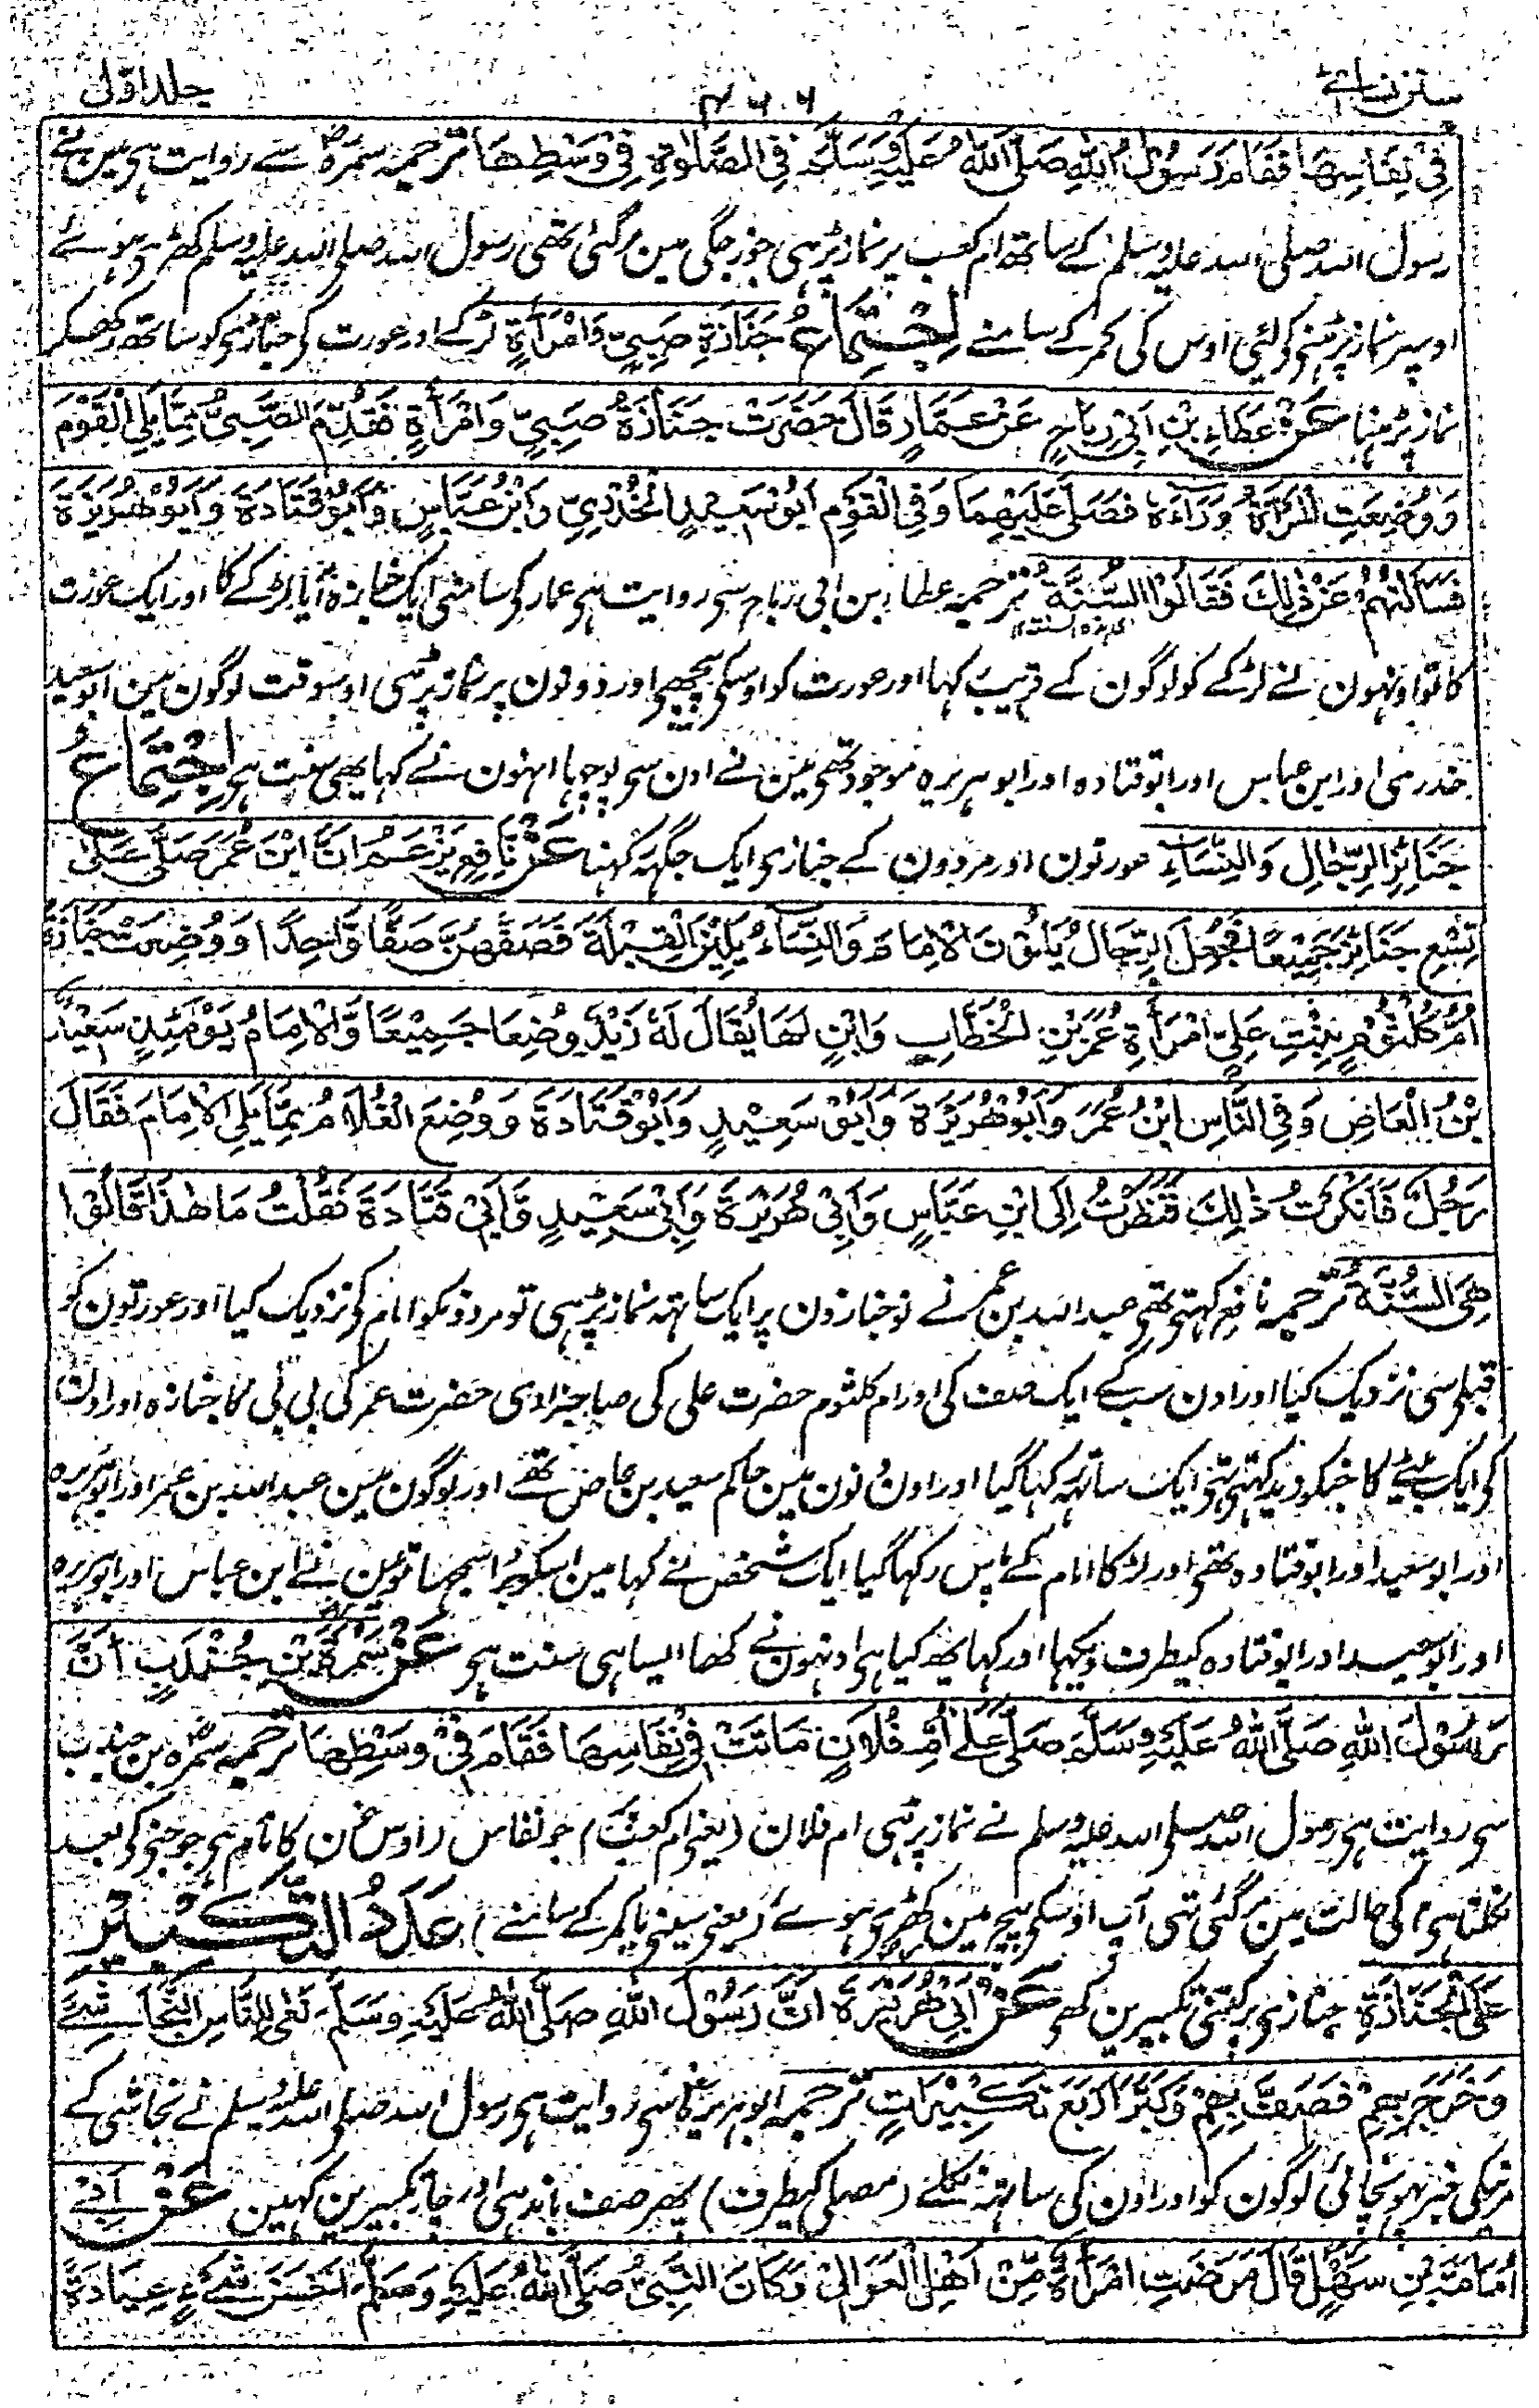 سنن نسائی ۶۶۴ جلد اوّل
فِیْ نِفَاسِهَا فَقَامَ رَسُوْلُ اللهِ صَلَّى اللهُ عَلَيْهِ وَسَلَّمَ فِي الصَّلٰوةِ فِيْ وَسَطِهَا ترجمہ سمرہؓ سے روایت ہی مین نے
رسول اللہ صلی اللہ علیہ وسلم کے ساتھ ام کعب پر نماز پڑہی جو زچگی مین مرگئی تھی رسول اللہ صلی اللہ علیہ وسلم کھڑے ہوئے
اوسپر نماز پڑہنی کو لئی اوس کی کمر کے سامنے اِجْتِمَاعُ جَنَازَةِ صَبِيٍّ وَامْرَأَةٍ لڑکے اور عورت کو جنازی کو ساتھ رکھکر
نماز پڑہنا عَنْ عَطَاءِ بْنِ اَبِيْ رَبَاحٍ عَنْ عَمَّارٍ قَالَ حَضَرَتْ جَنَازَةُ صَبِيٍّ وَامْرَأَةٍ فَقُدِّمَ الصَّبِيُّ مِمَّا يَلِي الْقَوْمَ
وَوُضِعَتِ الْمَرْأَةُ وَرَاءَهُ فَصَلّٰى عَلَيْهِمَا وَفِي الْقَوْمِ اَبُوْ سَعِيْدٍ الْخُدْرِيِّ وَابْنُ عَبَّاسٍ وَاَبُوْ قَتَادَةَ وَاَبُوْ هُرَيْرَةَ
فَسَاَلْتُهُمْ عَنْ ذٰلِكَ فَقَالُوا السُّنَّةُ ترجمہ عطاء بن ابی رباح سی روایت ہی عمار کو سامنی ایک جنازہ آیا لڑکے کا اور ایک عورت
کا تو اونہون نے لڑکے کو لوگون کے قریب رکہا اور عورت کو اوسکی پیچھی اور دونون پر نماز پڑہی اوسوقت لوگون مین ابو سعید
خدری اور ابن عباس اور ابو قتادہ اور ابو ہریرہ موجود تھی مین نے اون سی پوچہا انہون نے کہا یہی سنت ہی اِجْتِمَاعُ
جَنَائِزِ الرِّجَالِ وَالنِّسَاءِ عورتون اور مردون کے جنازی ایک جگہہ رکہنا عَنْ نَافِعٍ يَزْعُمُ اَنَّ ابْنَ عُمَرَ صَلّٰى عَلٰى
تِسْعِ جَنَائِزَ جَمِيْعًا فَجَعَلَ الرِّجَالُ يَلُوْنَ الْاِمَامَ وَالنِّسَاءُ يَلِيْنَ الْقِبْلَةَ فَصَفَّهُنَّ صَفًّا وَّاحِدًا وَوُضِعَتْ جَنَازَةُ
اُمِّ كُلْثُوْمٍ بِنْتِ عَلِيٍّ امْرَأَةِ عُمَرَ بْنِ الْخَطَّابِ وَابْنٍ لَهَا يُقَالُ لَهٗ زَيْدٌ وُضِعَا جَمِيْعًا وَّالْاِمَامُ يَوْمَئِذٍ سَعِيْدُ
بْنُ الْعَاصِ وَفِي النَّاسِ ابْنُ عُمَرَ وَاَبُوْ هُرَيْرَةَ وَاَبُوْ سَعِيْدٍ وَاَبُوْ قَتَادَةَ وَوُضِعَ الْغُلَامُ مِمَّا يَلِي الْاِمَامَ فَقَالَ
رَجُلٌ فَاَنْكَرْتُ ذٰلِكَ فَنَظَرْتُ اِلَى ابْنِ عَبَّاسٍ وَاَبِيْ هُرَيْرَةَ وَاَبِيْ سَعِيْدٍ وَّاَبِيْ قَتَادَةَ فَقُلْتُ مَا هٰذَا قَالُوْا
هِيَ السُّنَّةُ ترجمہ نافع کہتی تھی عبداللہ بن عمر نے نو جنازون پر ایک ساتہہ نماز پڑہی تو مردونکو امام کو نزدیک کیا اور عورتون کو
قبلی سی نزدیک کیا اور اون سب کے ایک صف کی اور ام کلثوم حضرت علی کی صاحبزادی حضرت عمر کی بی بی کا جنازہ اور اون
کی ایک بیٹے کا جنکو زید کہتی تہی ایک ساتہہ رکہا گیا اور اون دنون مین حاکم سعید بن عاص تھے اور لوگون مین عبداللہ بن عمر اور ابو ہریرہ
اور ابو سعید اور ابو قتادہ تھی اور لڑکا امام کے پاس رکہا گیا ایک شخص نے کہا مین اسکو برا سمجہا تو مین نے ابن عباس اور ابو ہریرہ
اور ابو سعید اور ابو قتادہ کیطرف دیکہا اور کہا یہہ کیا ہی اونہون نے کہا ایسا ہی سنت ہی عَنْ سَمُرَةَ بْنِ جُنْدَبٍ اَنَّ
رَسُوْلَ اللهِ صَلَّى اللهُ عَلَيْهِ وَسَلَّمَ صَلّٰى عَلٰى اُمِّ فُلَانٍ مَاتَتْ فِيْ نِفَاسِهَا فَقَامَ فِيْ وَسَطِهَا ترجمہ سمرہؓ بن جندب
سی روایت ہی رسول اللہ صلی اللہ علیہ وسلم نے نماز پڑہی ام فلان (یعنی ام کعب) جو نفاس (اوس خون کا نام ہی جو جننی کو بعد
نکلتا ہی) کی حالت مین مرگئی تہی آپ اوسکی بیچ مین کھڑی ہوئے (یعنی سینی یا کمر کے سامنے) عَدَدُ التَّكْبِيْرِ
عَلَى الْجَنَازَةِ جنازی پر کتنی تکبیرین کہی عَنْ اَبِيْ هُرَيْرَةَ اَنَّ رَسُوْلَ اللهِ صَلَّى اللهُ عَلَيْهِ وَسَلَّمَ نَعٰى لِلنَّاسِ النَّجَاشِيَّ
وَخَرَجَ بِهِمْ فَصَفَّ بِهِمْ وَكَبَّرَ اَرْبَعَ تَكْبِيْرَاتٍ ترجمہ ابو ہریرہؓ سی روایت ہی رسول اللہ صلی اللہ علیہ وسلم نے نجاشی کے
مرنیکی خبر پہونچائی لوگون کو اور اون کی ساتہہ نکلے (مصلی کیطرف) پھر صف باندہی اور چار تکبیرین کہین عَنْ اَبِيْ
اُمَامَةَ بْنِ سَهْلٍ قَالَ مَرِضَتِ امْرَأَةٌ مِّنْ اَهْلِ الْعَوَالِيْ وَكَانَ النَّبِيُّ صَلَّى اللهُ عَلَيْهِ وَسَلَّمَ اَحْسَنَ شَيْءٍ عِيَادَةً